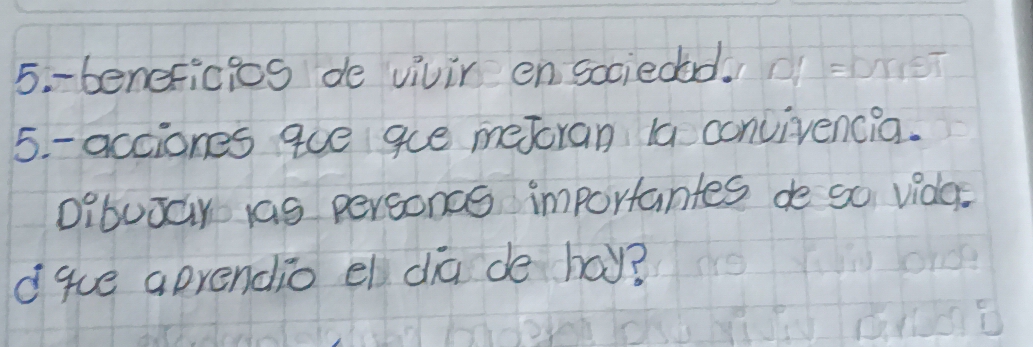 5.-beneficios de vivir en sociedad.
5.-acciones que que mejoran la convivencia.
Dibujar las personas importantes de so vida.
¿que aprendio el día de hoy?